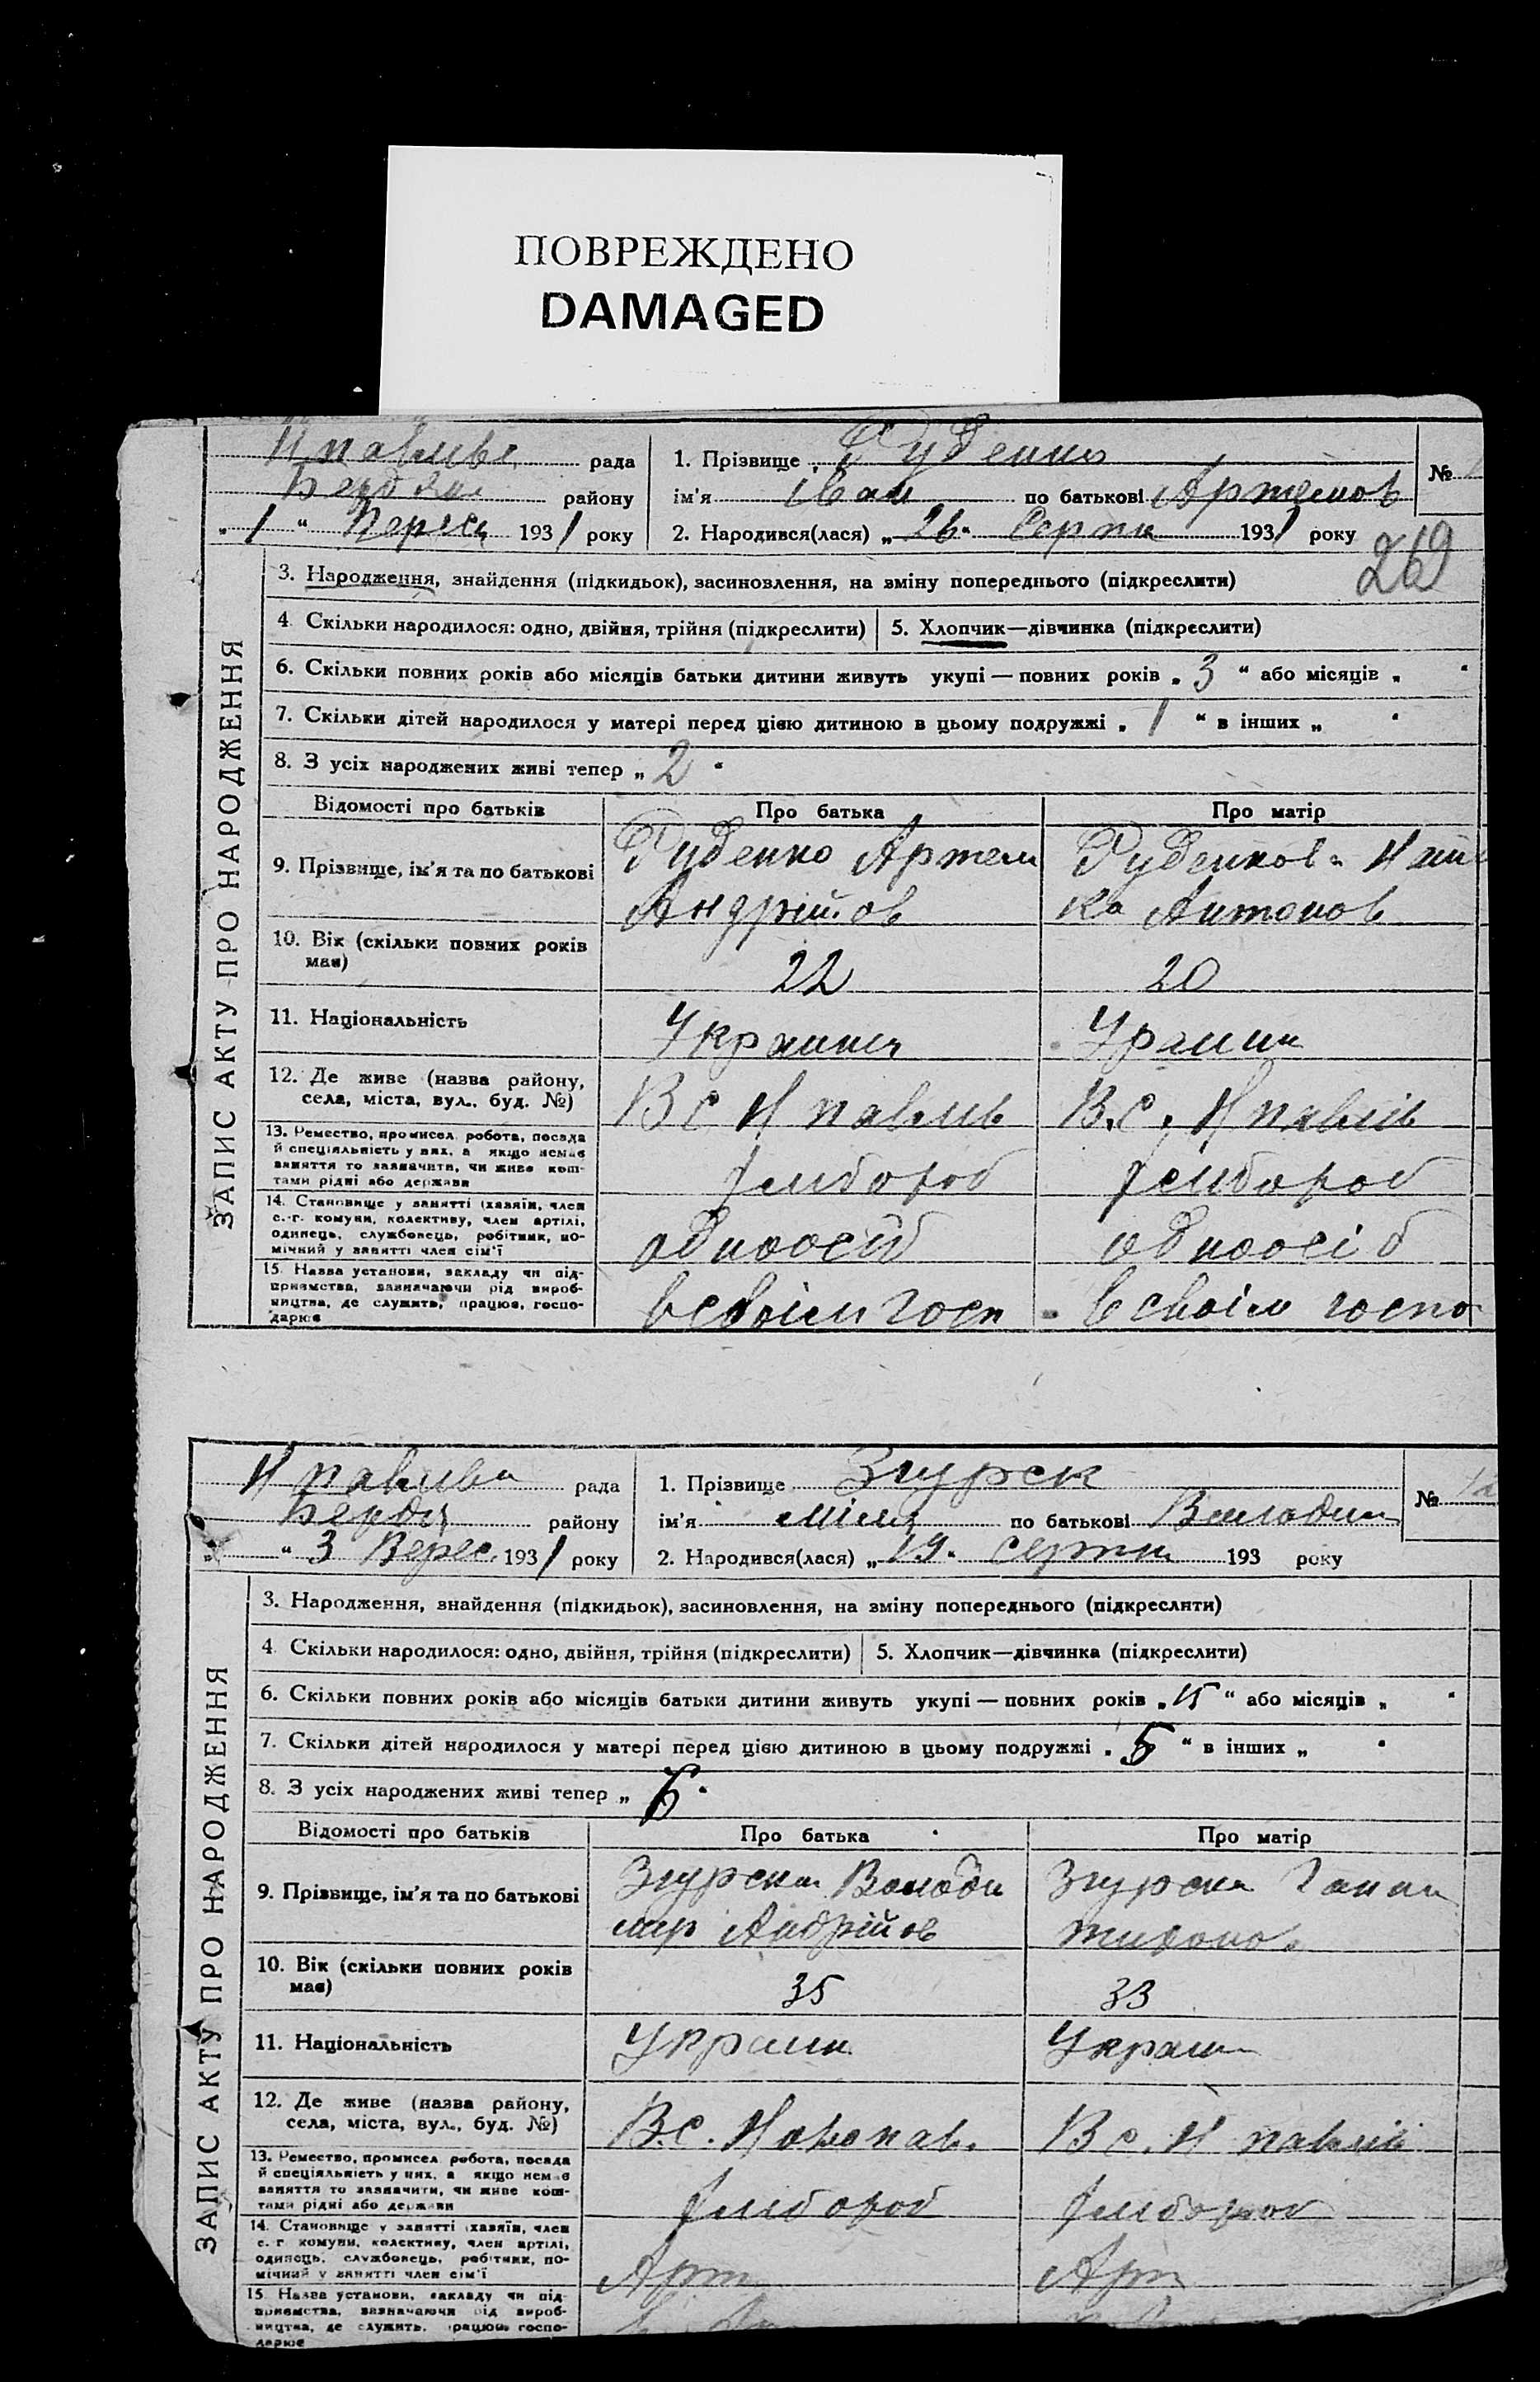 ПОВРЕЖДЕНО
DAMAGED
Н павлів рада
Бердян району
„ 1 “ Верес 1931 року
1. Прізвище Руденко
ім'я Іван по батькові Артемов
2. Народився(лася) „ 26 “ Серпн 1931 року
№
269
ЗАПИС АКТУ ПРО НАРОДЖЕННЯ
3. Народження, знайдення (підкидьок), засиновлення, на зміну попереднього (підкреслити)
4. Скільки народилося: одно, двійня, трійня (підкреслити) 5. Хлопчик—дівчинка (підкреслити)
6. Скільки повних років або місяців батьки дитини живуть укупі — повних років „ 3 “ або місяців „ “
7. Скільки дітей народилося у матері перед цією дитиною в цьому подружжі „ 1 “ в інших „ “
8. З усіх народжених живі тепер „ 2 “
Відомості про батьків Про батька Про матір
9. Прізвище, ім'я та по батькові Руденко Артем Руденков
Андрійов ка Антонов
10. Вік (скільки повних років має) 22 20
11. Національність Украинц Ураин
12. Де живе (назва району, села, міста, вул., буд. №) В с Н павлів В.С. Н павлів
13. Ремество, промисел, робота, посада й спеціяльність у них, а якщо немає заняття то зазначити, чи живе коштами рідні або держави хлібороб хлібороб
14. Становище у занятті (хазяїн, член с.-г. комуни, колективу, член артілі, одинець, службовець, робітник, помічний у занятті член сім'ї одноосіб одноосіб
15. Назва установи, закладу чи підприємства, зазначаючи рід виробництва, де служить, працює, господарює в своїм госп в своім госпо
Н павлів рада
Бердя району
„ “ 3 Верес. 1931 року
1. Прізвище Згурск
ім'я по батькові Володим
2. Народився(лася) „ 19 “ серпн 193 року
№ 12
ЗАПИС АКТУ ПРО НАРОДЖЕННЯ
3. Народження, знайдення (підкидьок), засиновлення, на зміну попереднього (підкреслити)
4. Скільки народилося: одно, двійня, трійня (підкреслити) 5. Хлопчик—дівчинка (підкреслити)
6. Скільки повних років або місяців батьки дитини живуть укупі — повних років „ 15 “ або місяців „ “
7. Скільки дітей народилося у матері перед цією дитиною в цьому подружжі „ 5 “ в інших „ “
8. З усіх народжених живі тепер „ 6 “
Відомості про батьків Про батька Про матір
9. Прізвище, ім'я та по батькові Згурски Володи Згурска Ганна
мир Андрійов Тихоно.
10. Вік (скільки повних років має) 35 33
11. Національність Украин Украин
12. Де живе (назва району, села, міста, вул., буд. №) В.С. Новопав. В с. Н павлів
13. Ремество, промисел, робота, посада й спеціяльність у них, а якщо немає заняття то зазначити, чи живе коштами рідні або держави хлібороб хлібороб
14. Становище у занятті (хазяїн, член с.-г. комуни, колективу, член артілі, одинець, службовець, робітник, помічний у занятті член сім'ї Арт Арт
15. Назва установи, закладу чи підприємства, зазначаючи рід виробництва, де служить, працює, господарює